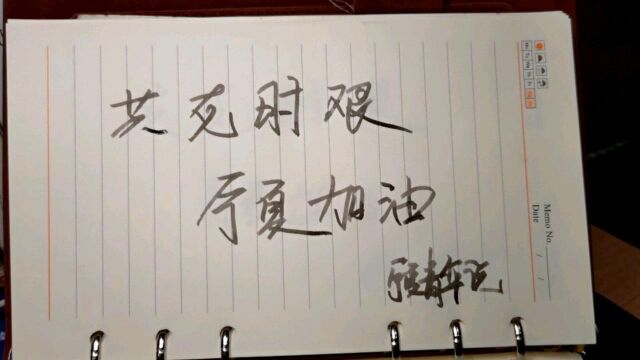 共克时艰
宁夏加油
Memo No.
Date / /